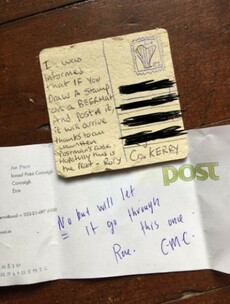 I was
informed
that IF You
Draw A Stamp
on a BEERMAT
And post it,
it will arrive
thanks to an
unwritten
Postman's Code.
Hopefully this is
the Post - Rory
Co. KERRY
An Post
post
No but will let
it go through
this once.
CMC.